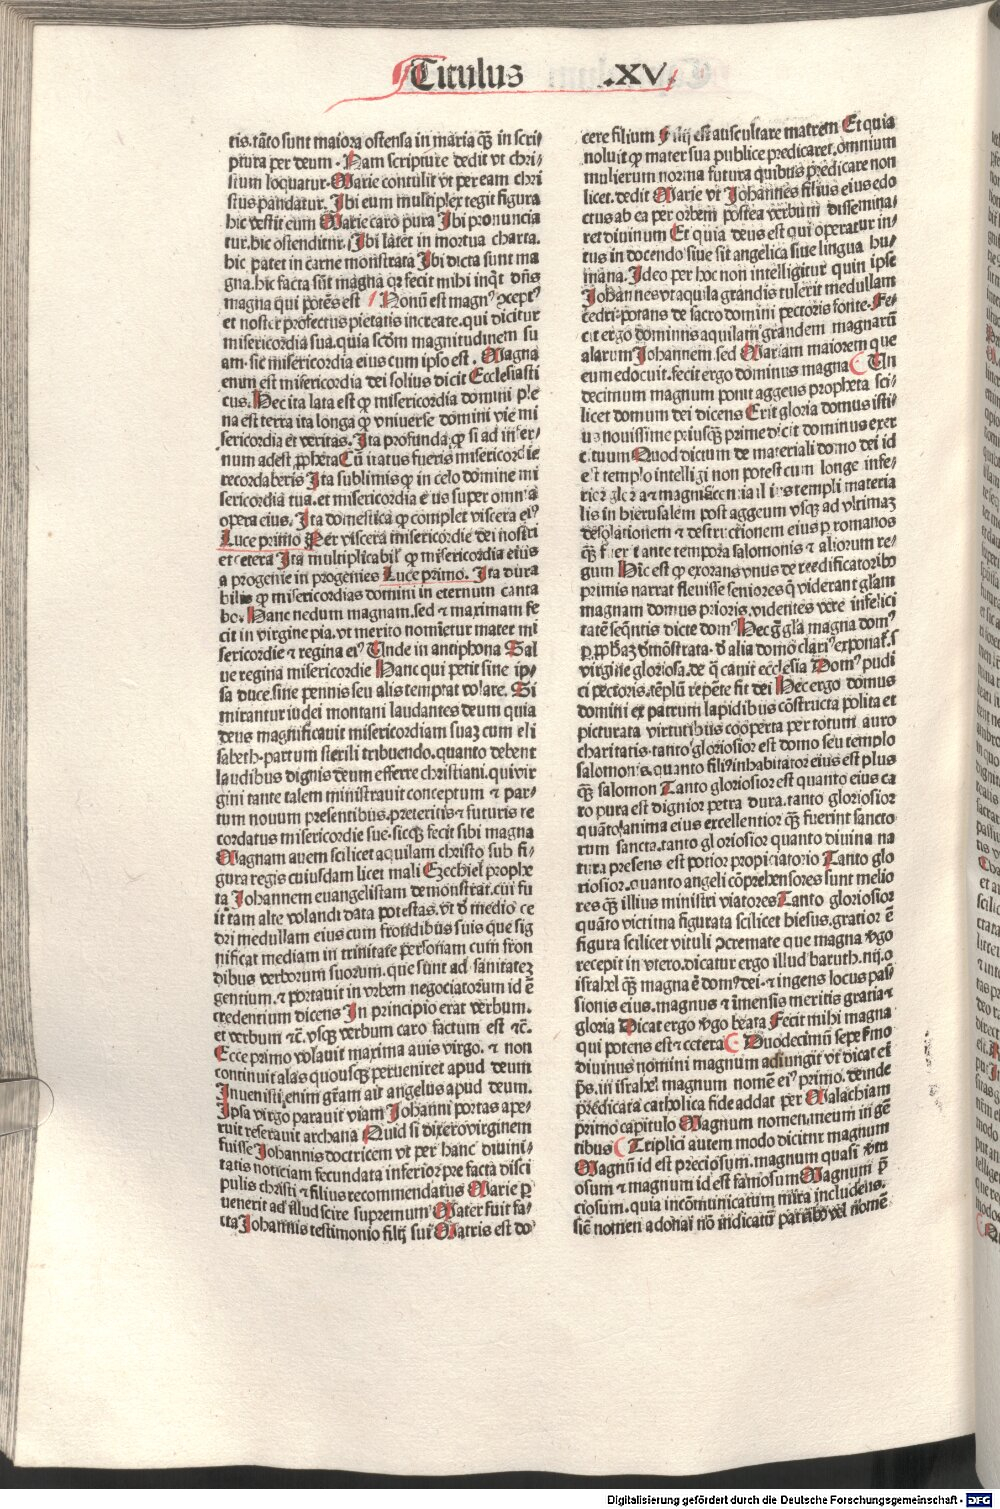 Titulus .XV.
tis. tāto sunt maiora ostensa in maria qȝ in scri⸗
ptura per deum. Nam scripture dedit vt chri⸗
stum loquatur. Marie contulit vt per eam chri
stus pandatur. Ibi eum multiplex tegit figura
hic vestit eum Marie caro pura Ibi pronuncia
tur. hic ostenditur. Ibi latet in mortua charta.
hic patet in carne monstrata Ibi dicta sunt ma
gna. hic facta sūt magna qꝛ fecit mihi inqͥt dn̄s
magna qui potēs est Nonū est magnꝰ ꝯceptꝰ
et noster profectus pietatis increate. qui dicitur
misericordia sua. quia scḋm magnitudinem su
am. sic misericordia eius cum ipso est. Magna
enim est misericordia dei solius dicit Ecclesiasti
cus. Hec ita lata est ꝙ misericordia domini ple
na est terra ita longa ꝙ vniuerse domini vie mi
sericordia et veritas. Ita profunda ꝙ si ad infer⸗
num adest ꝓpheta Cū iratus fueris misericordie
recordaberis Ita sublimis ꝙ in celo domine mi
sericordia tua. et misericordia eius super omnia
opera eius. Ita domestica ꝙ complet viscera eiꝰ
Luce primo Per viscera misericordie dei nostri
et cetera Ita multiplicabil' ꝙ misericordia eius
a progenie in progenies Luce primo. Ita dura
bilis ꝙ misericordias domini in eternum canta
bo. Hanc nedum magnam. sed ⁊ maximam fe
cit in virgine pia. vt merito nomīetur mater mi
sericordie ⁊ regina eiꝰ Unde in antiphona Sal
ue regina misericordie Hanc qui petit sine ip⸗
sa duce. sine pennis seu alis temptat volare. Si
mirantur iudei montani laudantes deum quia
deus magnificauit misericordiam suaȝ cum eli
sabeth. partum sterili tribuendo. quanto debent
laudibus dignis deum efferre christiani. qui vir
gini tante talem ministrauit conceptum ⁊ par⸗
tum nouum presentibus. preteritis ⁊ futuris re
cordatus misericordie sue. sicqȝ fecit sibi magna
Magnam auem scilicet aquilam christo sub fi⸗
gura regis cuiusdam licet mali Ezechiel prophe
ta Johannem euangelistam demonstrat. cui fu
it tam alte volandi data potestas. vt ḋ medio ce
dri medullam eius cum frondibus suis que sig
nificat mediam in trinitate personam cum fron
dibus verborum suorum. que sunt ad sanitateȝ
gentium. ⁊ portauit in vrbem negociatorum id ē
credentium dicens In principio erat verbum.
et verbum ⁊c̄. vsqȝ verbum caro factum est ⁊c̄.
Ecce primo volauit maxima auis virgo. ⁊ non
continuit alas quousqȝ perueniret apud deum
Inuenisti enim gr̄am ait angelus apud deum.
Ipsa virgo parauit viam Johanni portas ape⸗
ruit reserauit archana Quid si dixero virginem
fuisse Johannis doctricem vt per hanc diuini⸗
tatis noticiam fecundata inferior pre facta disci
pulis christi ⁊ filius recommendatus Marie ꝑ
uenerit ad illud scire supremum Mater fuit fa⸗
cta Johannis testimonio filij sui Matris est do⸗
cere filium Filij est auscultare matrem Et quia
noluit ꝙ mater sua publice predicaret. omnium
mulierum norma futura quibus predicare non
licet. dedit Marie vt Johannes filius eius edo
ctus ab ea per orbem postea verbum dissemina⸗
ret diuinum Et quia deus est qui operatur in⸗
tus in docendo siue sit angelica siue lingua hu⸗
mana. Ideo per hoc non intelligitur quin ipse
Johannes vt aquila grandis tulerit medullam
cedri. potans de sacro domini pectoris fonte. Fe⸗
cit ergo dominus aquilam grandem magnarū
alarum Johannem sed Mariam maiorem que
eum edocuit. fecit ergo dominus magna Un
decimum magnum ponit aggeus propheta sci⸗
licet domum dei dicens Erit gloria domus isti⸗
us nouissime priusqȝ prime dicit dominus exer
cituum Quod dictum de materiali domo dei id
est templo intelligi non potest cum longe infe⸗
rior gloria ⁊ magnificentia illius templi materia
lis in hierusalem post aggeum vsqȝ ad vltimaȝ
desolationem ⁊ destructionem eius ꝑ romanos
qȝ fuerit ante tempora salomonis ⁊ aliorum re⸗
gum Hinc est ꝙ exorans vnus de reedificatoribꝰ
primis narrat fleuisse seniores q̄ viderant gl'am
magnam domus prioris. videntes vere infelici
tatē seq̄ntis dicte domꝰ Hec g̊ gl'a magna domꝰ
ꝑ ꝓphaȝ ḋmōstrata. ḋ alia domo clariꝰ exponaf. s
virgine gloriosa. de q̄ canit ecclesia Domꝰ pudi
ci pectoris. tēplū repēte fit dei Hec ergo domus
domini ex patrum lapidibus cōstructa polita et
picturata virtutibus cooperta per totum auro
charitatis. tanto gloriosior est domo seu templo
salomonis. quanto filiꝰ inhabitator eius est plus
qȝ salomon Tanto gloriosior est quanto eius ca
ro pura est dignior petra dura. tanto gloriosior
quāto anima eius excellentior qȝ fuerint sancto⸗
rum sancta. tanto gloriosior quanto diuina na
tura presens est potior propiciatorio Tanto glo
riosior. quanto angeli cōprehensores sunt melio
res qȝ illius ministri viatores Tanto gloriosior
quāto victima figurata scilicet hiesus. gratior ē
figura scilicet vituli ꝯcremate que magna v̊go
recepit in vtero. dicatur ergo illud baruth. iij. o
israhel qȝ magna ē domꝰ dei. ⁊ ingens locus pas⸗
sionis eius. magnus ⁊ īmensus meritis gratia ⁊
gloria Dicat ergo v̊go beata Fecit mihi magna
qui potens est ⁊ cetera Duodecimū sepe sermo
diuinus nomini magnum adiungit vt dicat eī
ps̄. in israhel magnum nomē eiꝰ primo. deinde
predicata catholica fide addat per Malachiam
primo capitulo Magnum nomen meum in gē
tibus Triplici autem modo dicitur magnum
Magnū id est preciosum. magnum quasi virtu
osum ⁊ magnum id est famosum Magnum p̄
ciosum. quia incōmunicatum mira includens.
sic nomen adonai nō indicatū patribꝰ vel nomē
Digitalisierung gefördert durch die Deutsche Forschungsgemeinschaft - DFG